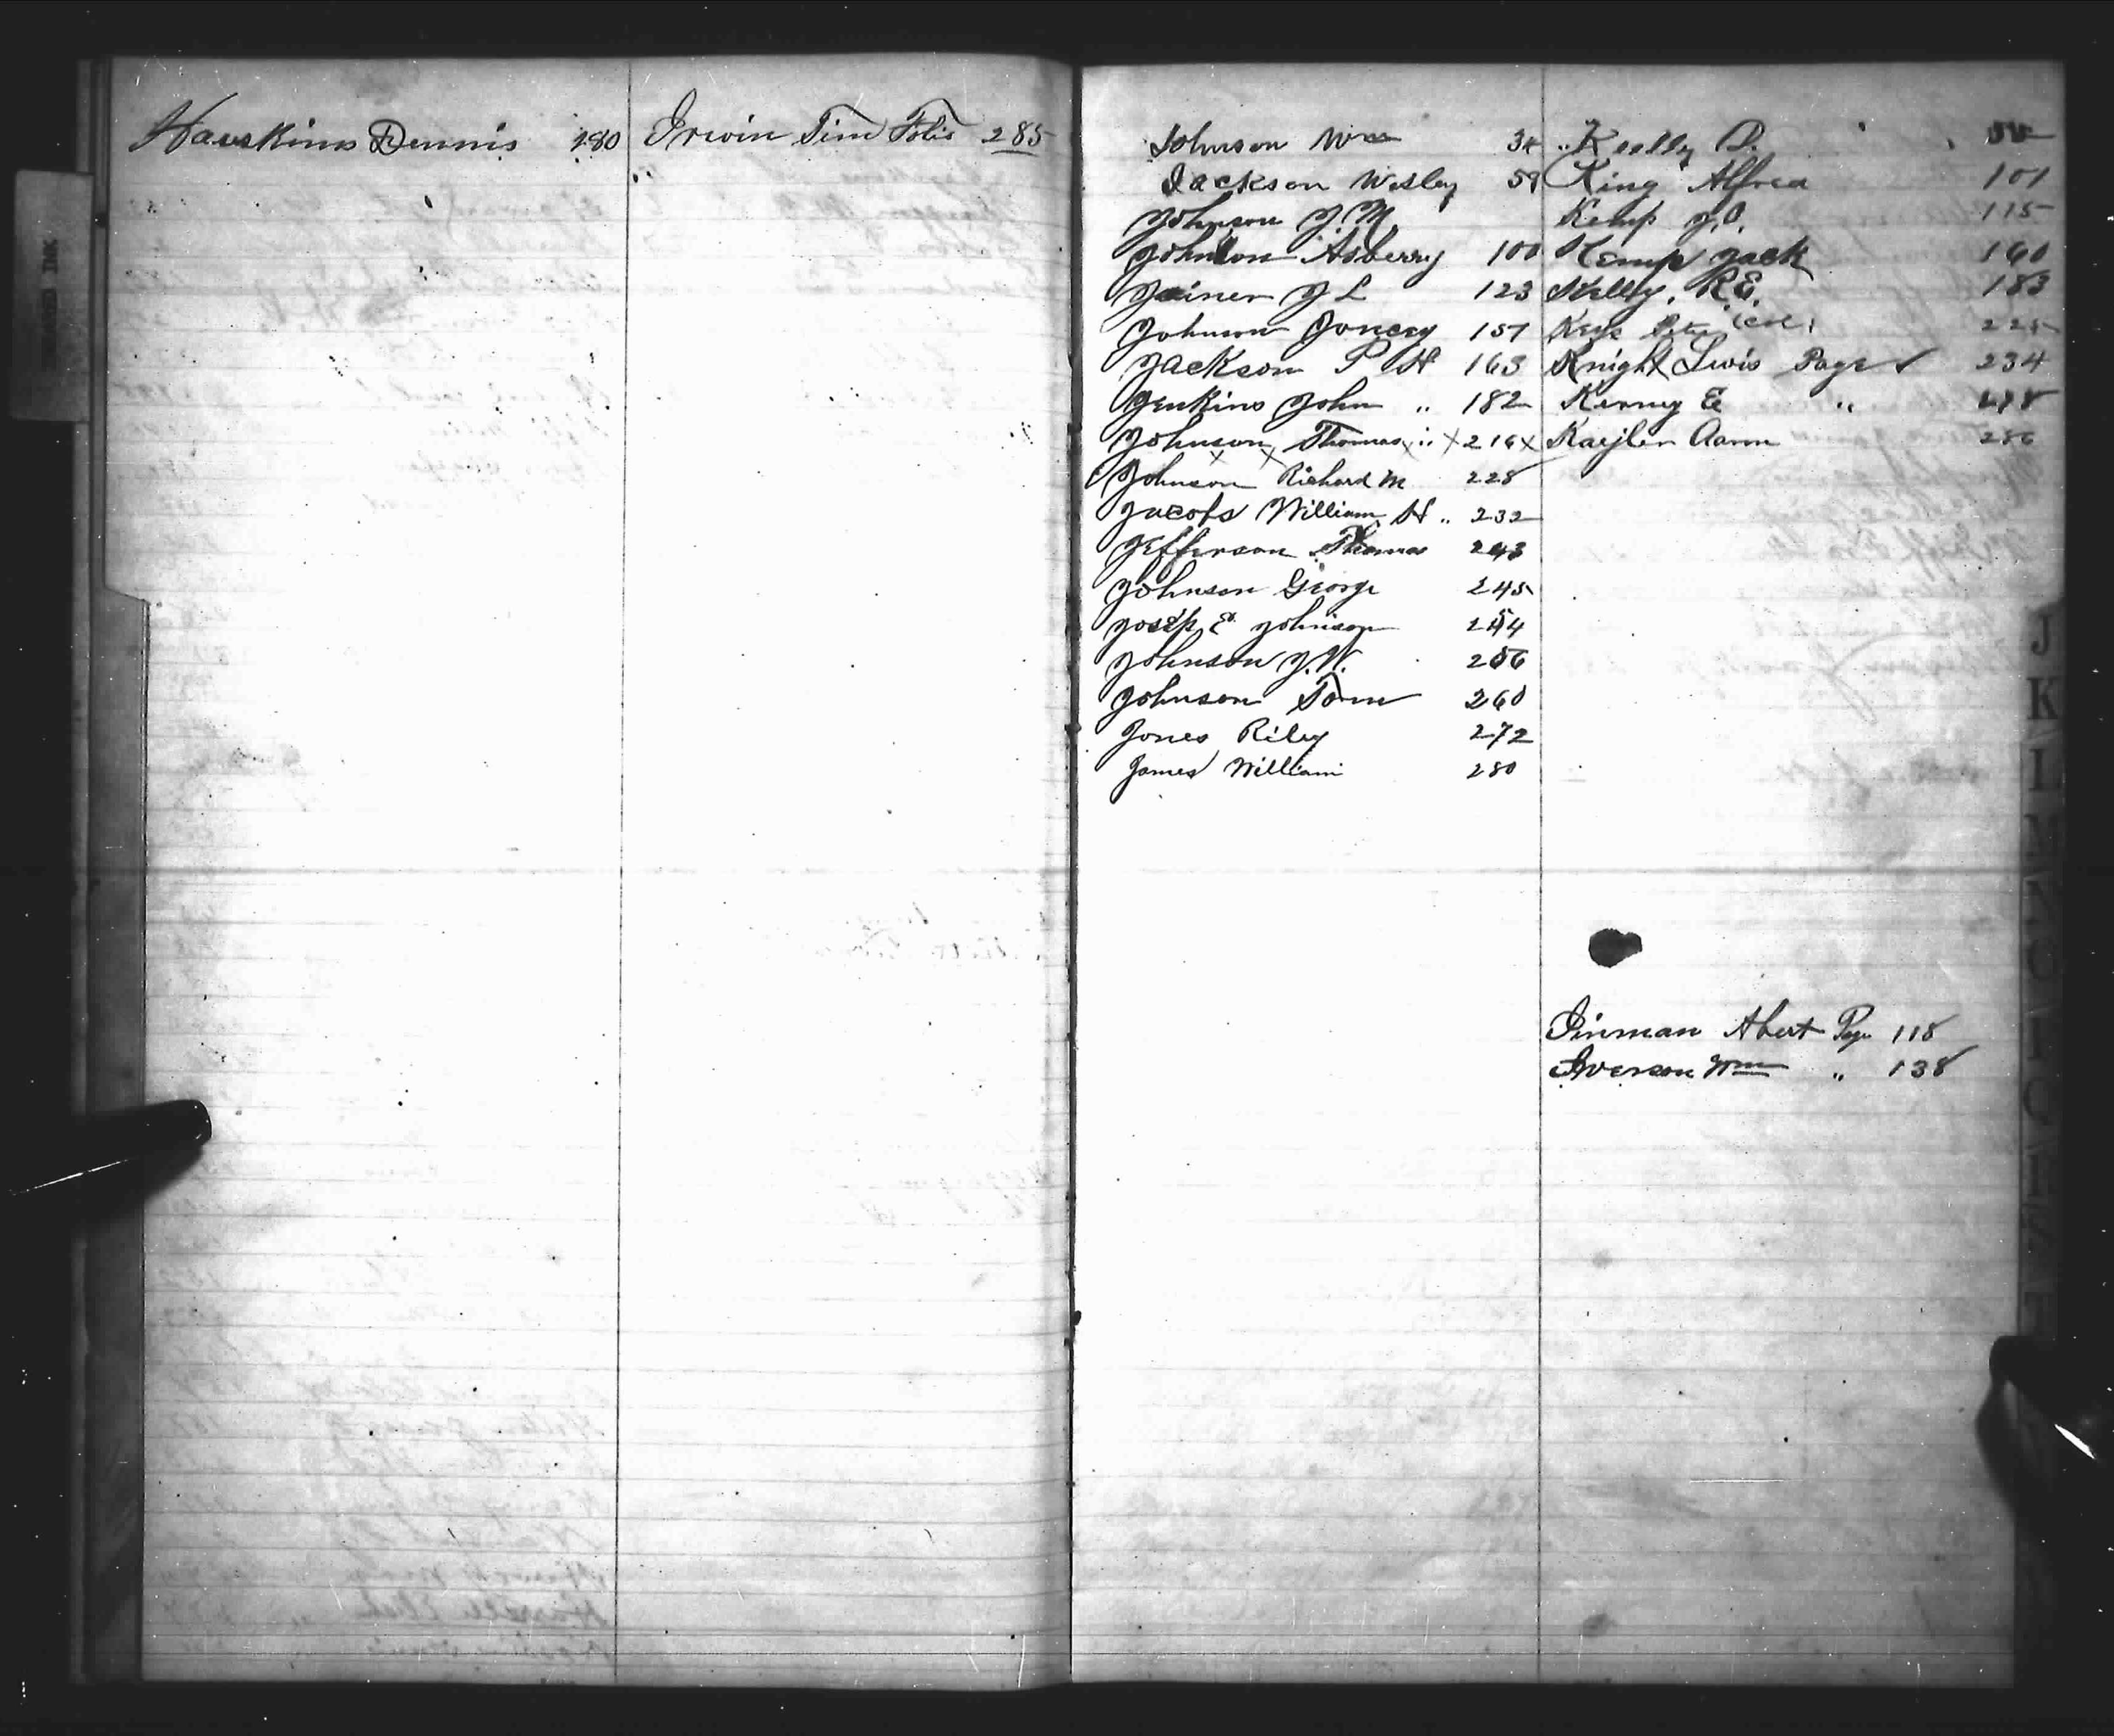 Hauskins Dennis 280
Irwin Tim Folio 285
Johnson Wm 34
Jackson Wesley 59
Johnson J. M.
Johnson Asberry 100
Joiner J L 123
Johnson Joncey 157
Jackson P H 163
Jenkins John " 182
Johnson Thomas " x 216 x
Johnson Richard M 228
Jacobs William H " 232
Jefferson Thomas 243
Johnson George 245
Josep E Johnison 254
Johnson J. W. 256
Johnson Tom 260
Jones Riley 272
James William 280
Kelly D.
King Alfred 101
Kemp J. O. 115
Kemp Jack 160
Kelly, R. E. 183
Keys (col) 225
Knight Lewis Page 234
Kerney E "
Kaejler Aaron 286
Iinman Abert Page 118
Iverson Wm " 138
J
K
L
M
N